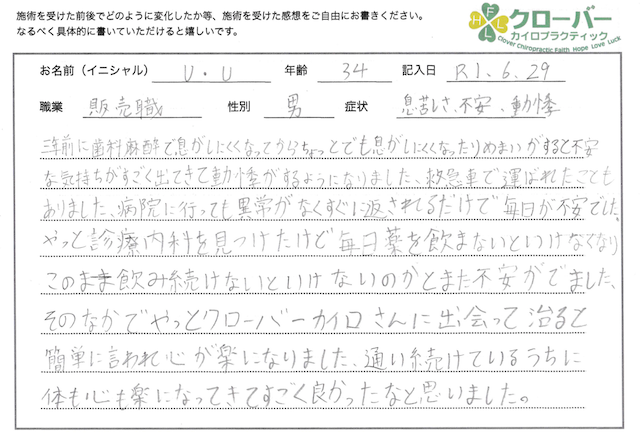 施術を受けた前後でどのように変化したか等、施術を受けた感想をご自由にお書きください。
なるべく具体的に書いていただけると嬉しいです。
HFLL
クローバー
カイロプラクティック
Clover Chiropractic Faith Hope Love Luck
お名前（イニシャル） U.U 年齢 34 記入日 R1.6.29
職業 販売職 性別 男 症状 息苦しさ、不安、動悸
三年前に歯科麻酔で息がしにくくなってからちょっとでも息がしにくくなったりめまいがすると不安
な気持ちがすごく出てきて動悸がするようになりました、救急車で運ばれたことも
ありました、病院に行っても異常がなくすぐに返されるだけで毎日が不安でした、
やっと診療内科を見つけたけど毎日薬を飲まないといけなくなり
このまま飲み続けないといけないのかとまた不安がでました、
そのなかでやっとクローバーカイロさんに出会って治ると
簡単に言われ心が楽になりました、通い続けているうちに
体も心も楽になってきてすごく良かったなと思いました。